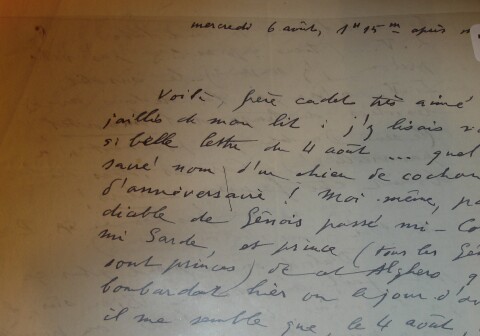 mercredi 6 août, 1h 15m après
Voilà, frère cadet très aimé
jailli de mon lit : j'y lisais
si belle lettre du 4 août ... quel
sacré nom d'un chien de cochon
d'anniversaire ! Moi-même,
diable de Génois passé mi-
mi Sarde, et prince (tous les
sont princes) de cet Alghero
bombardat hier un à jour
il me semble que, le 4 août,